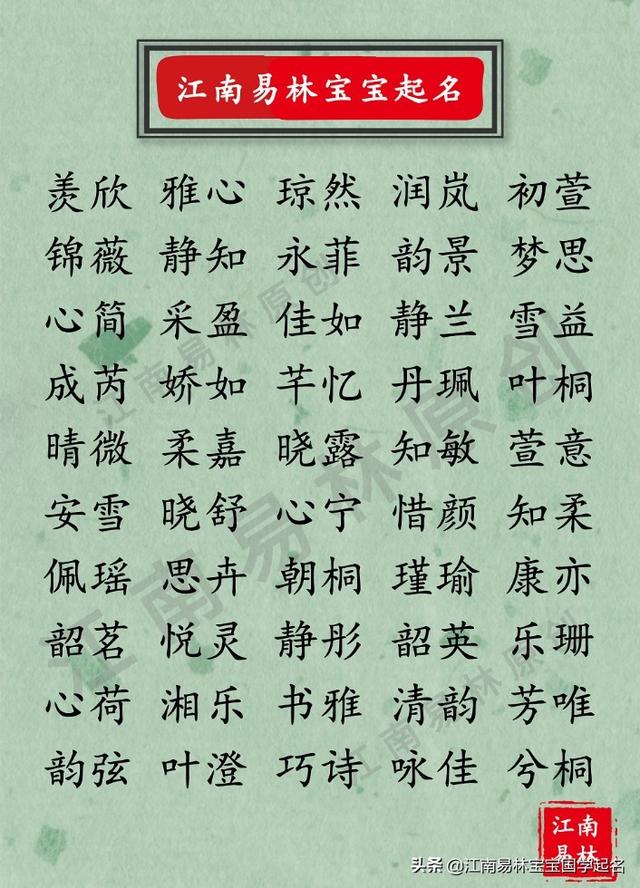 江南易林宝宝起名
羡欣 雅心 琼然 润岚 初萱
锦薇 静知 永菲 韵景 梦思
心简 采盈 佳如 静兰 雪益
成芮 娇如 芊忆 丹珮 叶桐
晴微 柔嘉 晓露 知敏 萱意
安雪 晓舒 心宁 惜颜 知柔
佩瑶 思卉 朝桐 瑾瑜 康亦
韶茗 悦灵 静彤 韶英 乐珊
心荷 湘乐 书雅 清韵 芳唯
韵弦 叶澄 巧诗 咏佳 兮桐
江南易林原创
江南易林原创
江南易林原创
江南
易林
头条 @江南易林宝宝国学起名